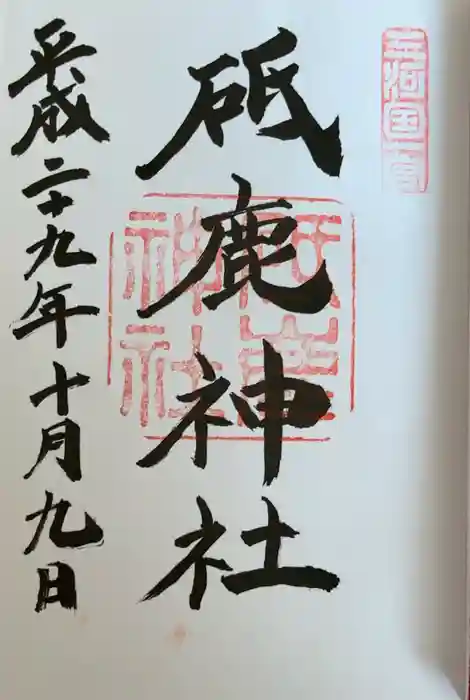 三河国一宮
砥鹿神社
砥鹿神社
平成二十九年十月九日